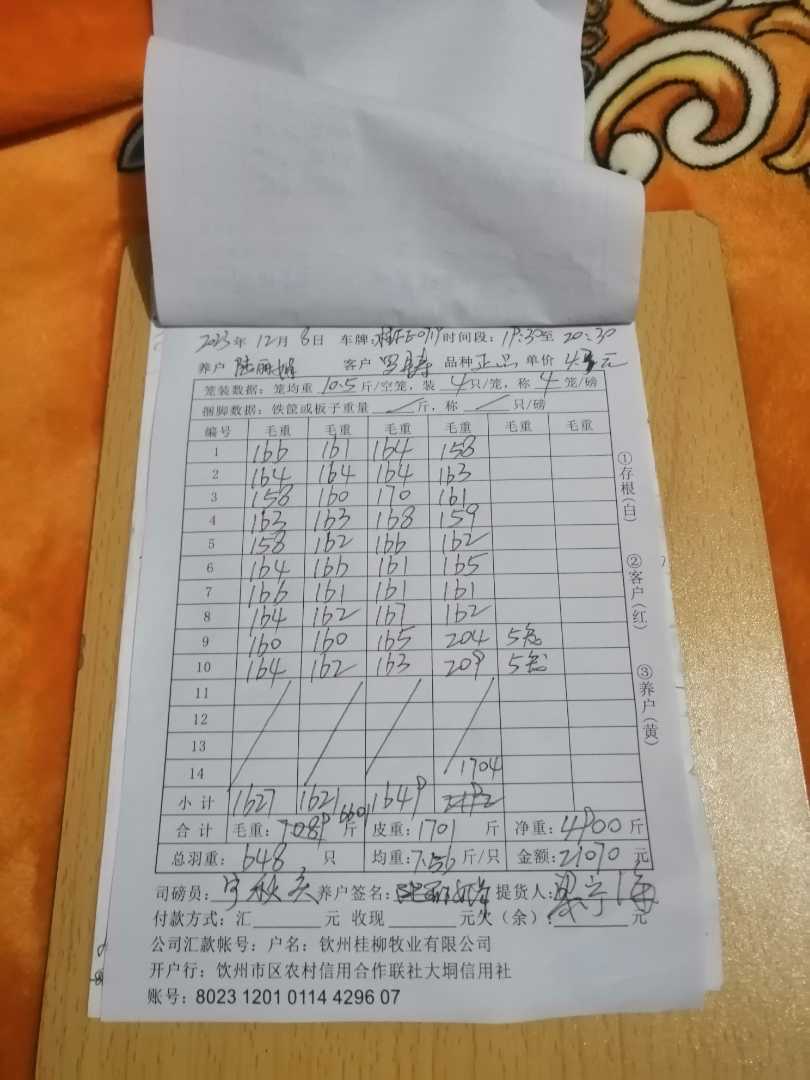 2023年 12月 8日 车牌: 时间段: 19:30至 20:30
养户 陆丽 客户 罗 品种 正品 单价 4.3元
笼装数据: 笼均重 10.5 斤/空笼, 装 4 只/笼, 称 4 笼/磅
捆脚数据: 铁筐或板子重量 斤, 称 只/磅
编号 毛重 毛重 毛重 毛重 毛重 毛重
1 166 161 164 158
2 164 164 164 163
3 158 160 170 161
4 163 163 168 159
5 158 162 166 162
6 164 166 161 165
7 166 161 161 161
8 164 162 167 162
9 160 160 165 204 5笼
10 164 162 163 209 5笼
11
12
13
14 1704
小计 1627 1621 1649
6601
合计 毛重: 斤 皮重: 1701 斤 净重: 4900 斤
总羽重: 648 只 均重: 7.56 斤/只 金额: 21070 元
司磅员: 宁秋 养户签名: 提货人:
付款方式: 汇 元 收现 元欠(余): 元
公司汇款帐号: 户名: 钦州桂柳牧业有限公司
开户行: 钦州市区农村信用合作联社大垌信用社
账号: 8023 1201 0114 4296 07
①存根(白)
②客户(红)
③养户(黄)